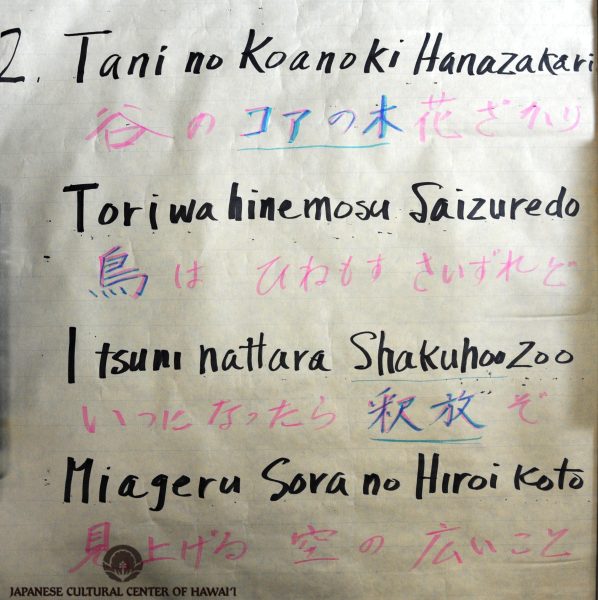 2. Tani no Koanoki Hanazakari
谷のコアの木花ざかり
Tori wa hinemosu Saizuredo
鳥は ひねもす さいずれど
Itsuni nattara ShakuhooZoo
いつになったら 釈放ぞ
Miageru Sora no Hiroi Koto
見上げる 空の 広いこと
JAPANESE CULTURAL CENTER OF HAWAI‘I